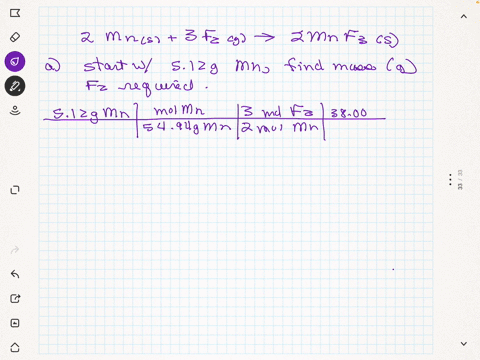 2 Mn(s) + 3 F2 (g) → 2 Mn F3 (s)
a) start w/ 5.12 g Mn, find mass (g)
F2 required.
5.12 g Mn | mol Mn | 3 mol F2 | 38.00
54.94 g Mn | 2 mol Mn
33 / 33